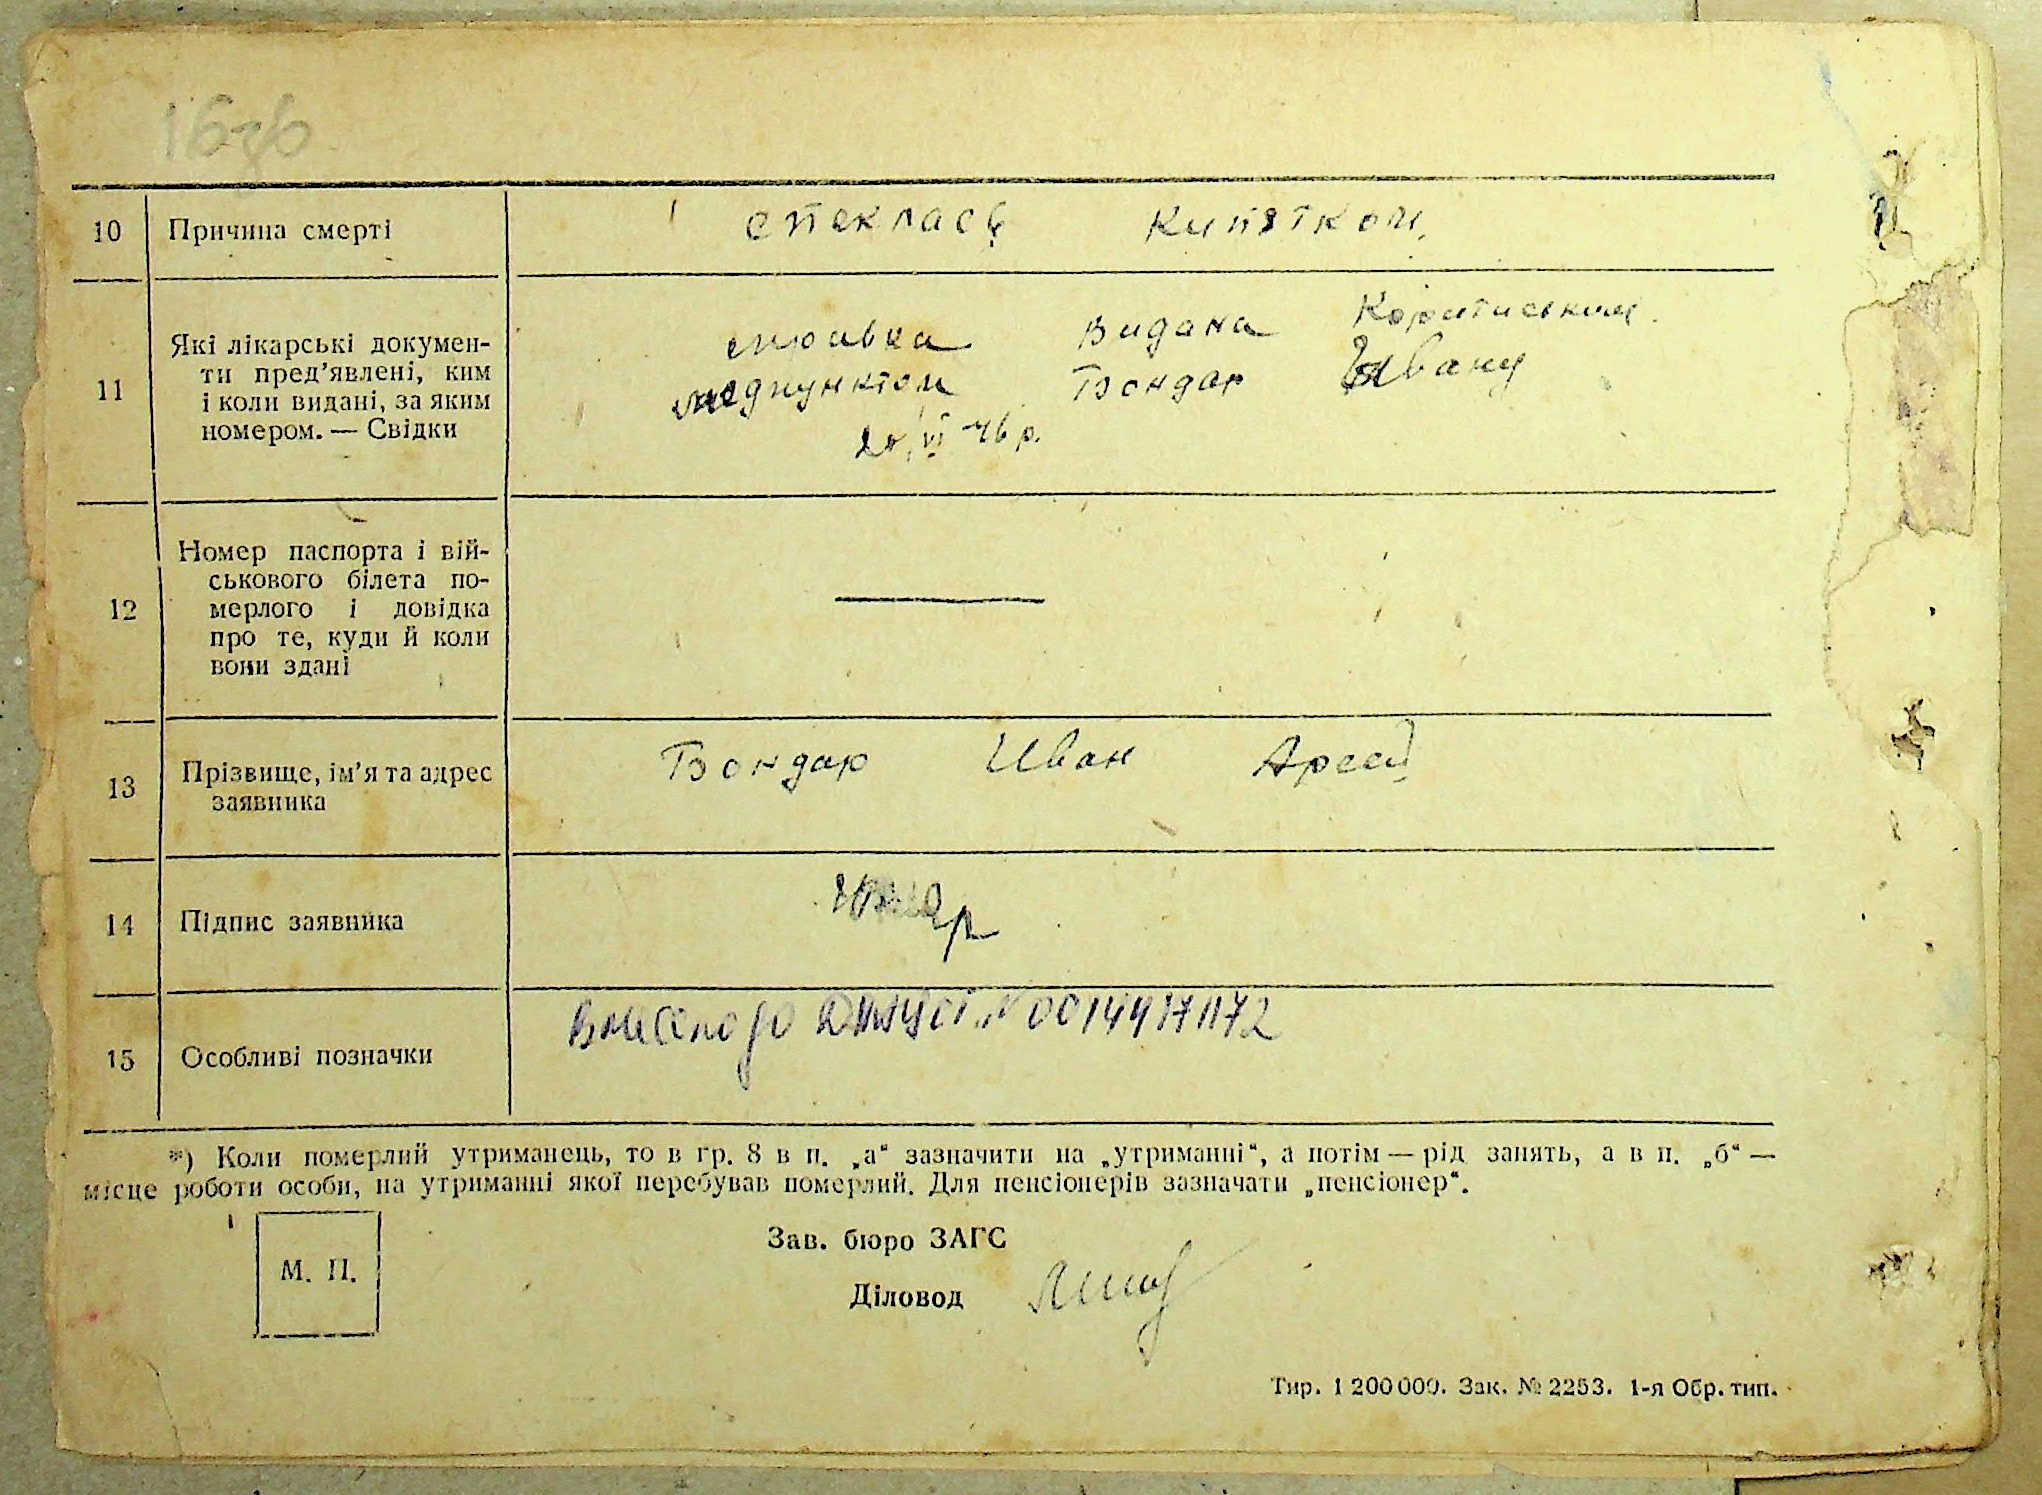 16зв
10 Причина смерті спеклась кипятком.
11 Які лікарські докумен-
ти пред’явлені, ким
і коли видані, за яким
номером. — Свідки
справка видана
медпунктом Бондар Ивану
20/VI-46 р.
12 Номер паспорта і вій-
ськового білета по-
мерлого і довідка
про те, куди й коли
вони здані
13 Прізвище, ім’я та адрес
заявника
Бондар Иван
14 Підпис заявника
15 Особливі позначки
Внесено до ДРАЦСГ. № 00144171172
*) Коли померлий утриманець, то в гр. 8 в п. „а“ зазначити на „утриманні“, а потім — рід занять, а в п. „б“ —
місце роботи особи, на утриманні якої перебував померлий. Для пенсіонерів зазначати „пенсіонер“.
М. П.
Зав. бюро ЗАГС
Діловод
Тир. 1 200 000. Зак. № 2253. 1-я Обр. тип.